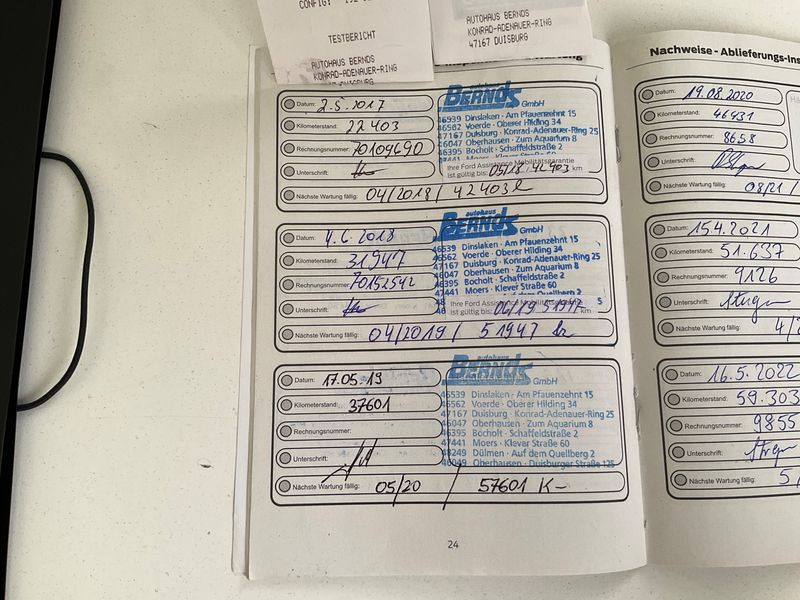 TESTBERICHT
AUTOHAUS BERNDS
KONRAD-ADENAUER-RING
AUTOHAUS BERNDS
KONRAD-ADENAUER-RING
47167 DUISBURG
Datum: 2.5.2017
Kilometerstand: 22403
Rechnungsnummer: 70109690
Unterschrift:
Nächste Wartung fällig: 04/2018/ 42403
BERNDS GmbH
46539 Dinslaken · Am Pfauenzehnt 15
46562 Voerde · Oberer Hilding 34
47167 Duisburg · Konrad-Adenauer-Ring 25
46047 Oberhausen · Zum Aquarium 8
46395 Bocholt · Schaffeldstraße 2
47441 Moers · Klever Straße 60
Ihre Ford Assistance Mobilitätsgarantie
ist gültig bis: 05/18, 42403 km
Datum: 4.6.2018
Kilometerstand: 31947
Rechnungsnummer: 70152542
Unterschrift:
Nächste Wartung fällig: 04/2019/ 51947
autohaus
BERNDS GmbH
46539 Dinslaken · Am Pfauenzehnt 15
46562 Voerde · Oberer Hilding 34
47167 Duisburg · Konrad-Adenauer-Ring 25
46047 Oberhausen · Zum Aquarium 8
46395 Bocholt · Schaffeldstraße 2
47441 Moers · Klever Straße 60
ist gültig bis: 06/19 51947 km
Datum: 17.05.19
Kilometerstand: 37601
Rechnungsnummer:
Unterschrift:
Nächste Wartung fällig: 05/20 / 57601 K-
autohaus
BERNDS GmbH
46539 Dinslaken · Am Pfauenzehnt 15
46562 Voerde · Oberer Hilding 34
47167 Duisburg · Konrad-Adenauer-Ring 25
46047 Oberhausen · Zum Aquarium 8
46395 Bocholt · Schaffeldstraße 2
47441 Moers · Klever Straße 60
48249 Dülmen · Auf dem Quellberg 2
46049 Oberhausen · Duisburger Straße 125
24
Nachweise - Ablieferungs-Ins
Datum: 19.08.2020
Kilometerstand: 46931
Rechnungsnummer: 8658
Unterschrift:
Nächste Wartung fällig: 08/21 /
Datum: 15.4.2021
Kilometerstand: 51.637
Rechnungsnummer: 9126
Unterschrift:
Nächste Wartung fällig: 4/2
Datum: 16.5.2022
Kilometerstand: 59.303
Rechnungsnummer: 9855
Unterschrift:
Nächste Wartung fällig: 5/